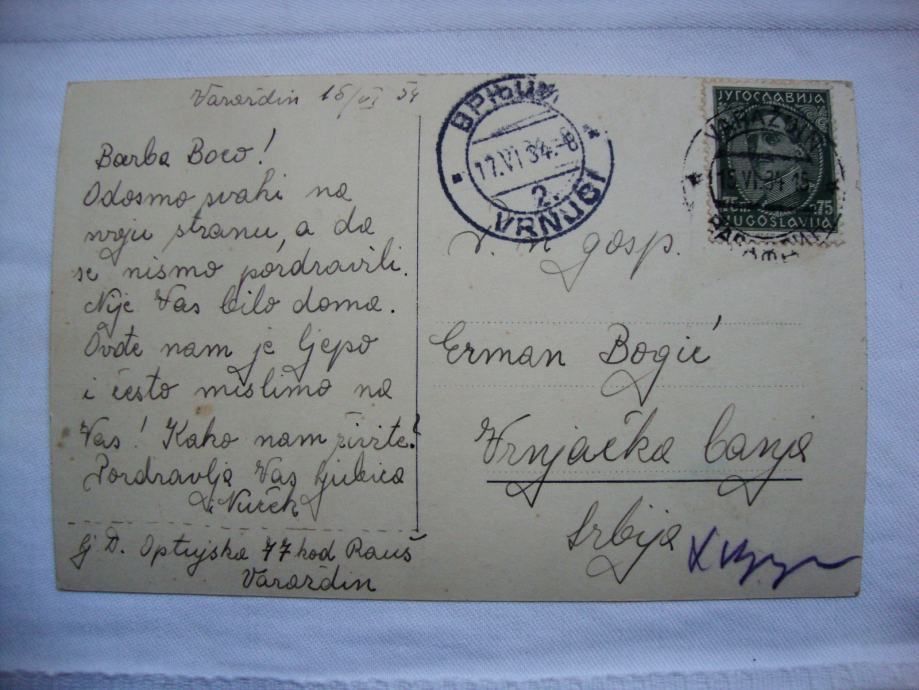 Varaždin 15/VI 34
Barba Boco!
Odosmo svahi na
svoju stranu, a da
se nismo pordravili.
Nije Vas bilo doma.
Ovđe nam je ljepo
i često mislimo na
Vas! Kako nam živite?
Pordravlja Vas Ljubica
Lj D. Optujska 77 kod Rauš
Varaždin
ВРЊЦИ
17.VI 34.-8
2.
VRNJCI
ЈУГОСЛАВИЈА
75 75
JUGOSLAVIJA
VARAŽDIN
15.VI.34 15
ВАРАЖДИН
gosp.
Erman Bogić
Vrnjačka banja
Srbija